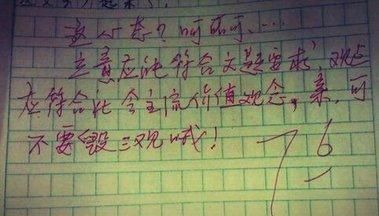 重口卷？呵呵呵、…
立意应该符合文题要求，观点
应符合社会主流价值观念，亲，可
不要毁三观哦！
76